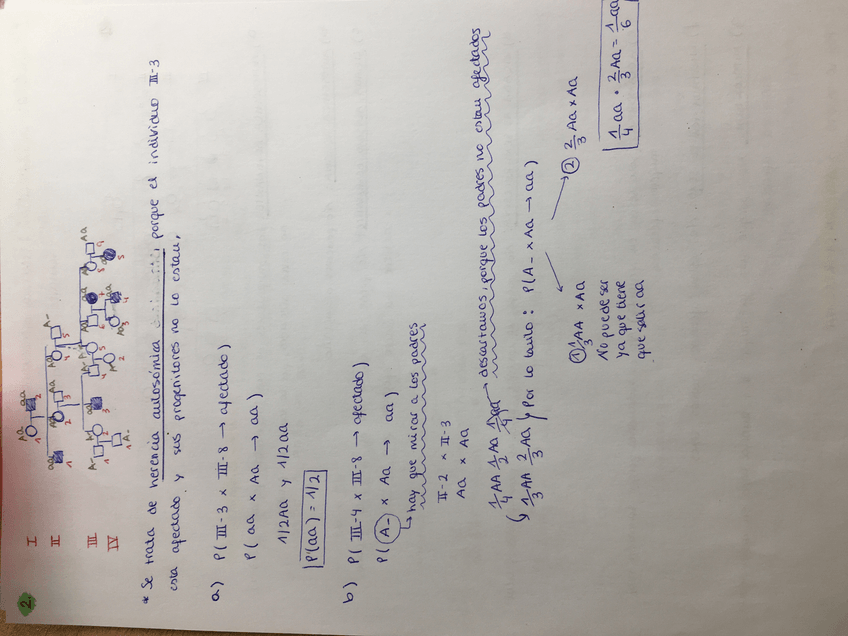 2.
I
Aa aa
1 2
II
aa Aa Aa Aa A-
1 2 3 4 5
III
A- Aa aa A- Aa aa Aa Aa
1 2 3 4 5 6 7 8 9
IV
A- Aa Aa aa aa
1 2 3 4 5
* Se trata de herencia autosómica, porque el individuo III-3
esta afectado y sus progenitores no lo estan.
a) P(III-3 x III-8 → afectado)
P(aa x Aa → aa)
1/2Aa y 1/2aa
P(aa) = 1/2
b) P(III-4 x III-8 → afectado)
P(A- x Aa → aa)
↳ hay que mirar a los padres
II-2 x II-3
Aa x Aa
1/4 AA 1/2 Aa 1/4 aa → descartamos, porque los padres no estan afectados
↳ 1/3 AA 2/3 Aa, Por lo tanto: P(A- x Aa → aa)
① 1/3 AA x Aa
No puede ser
ya que tiene
que salir aa
② 2/3 Aa x Aa
1/4 aa · 2/3 Aa = 1/6 aa